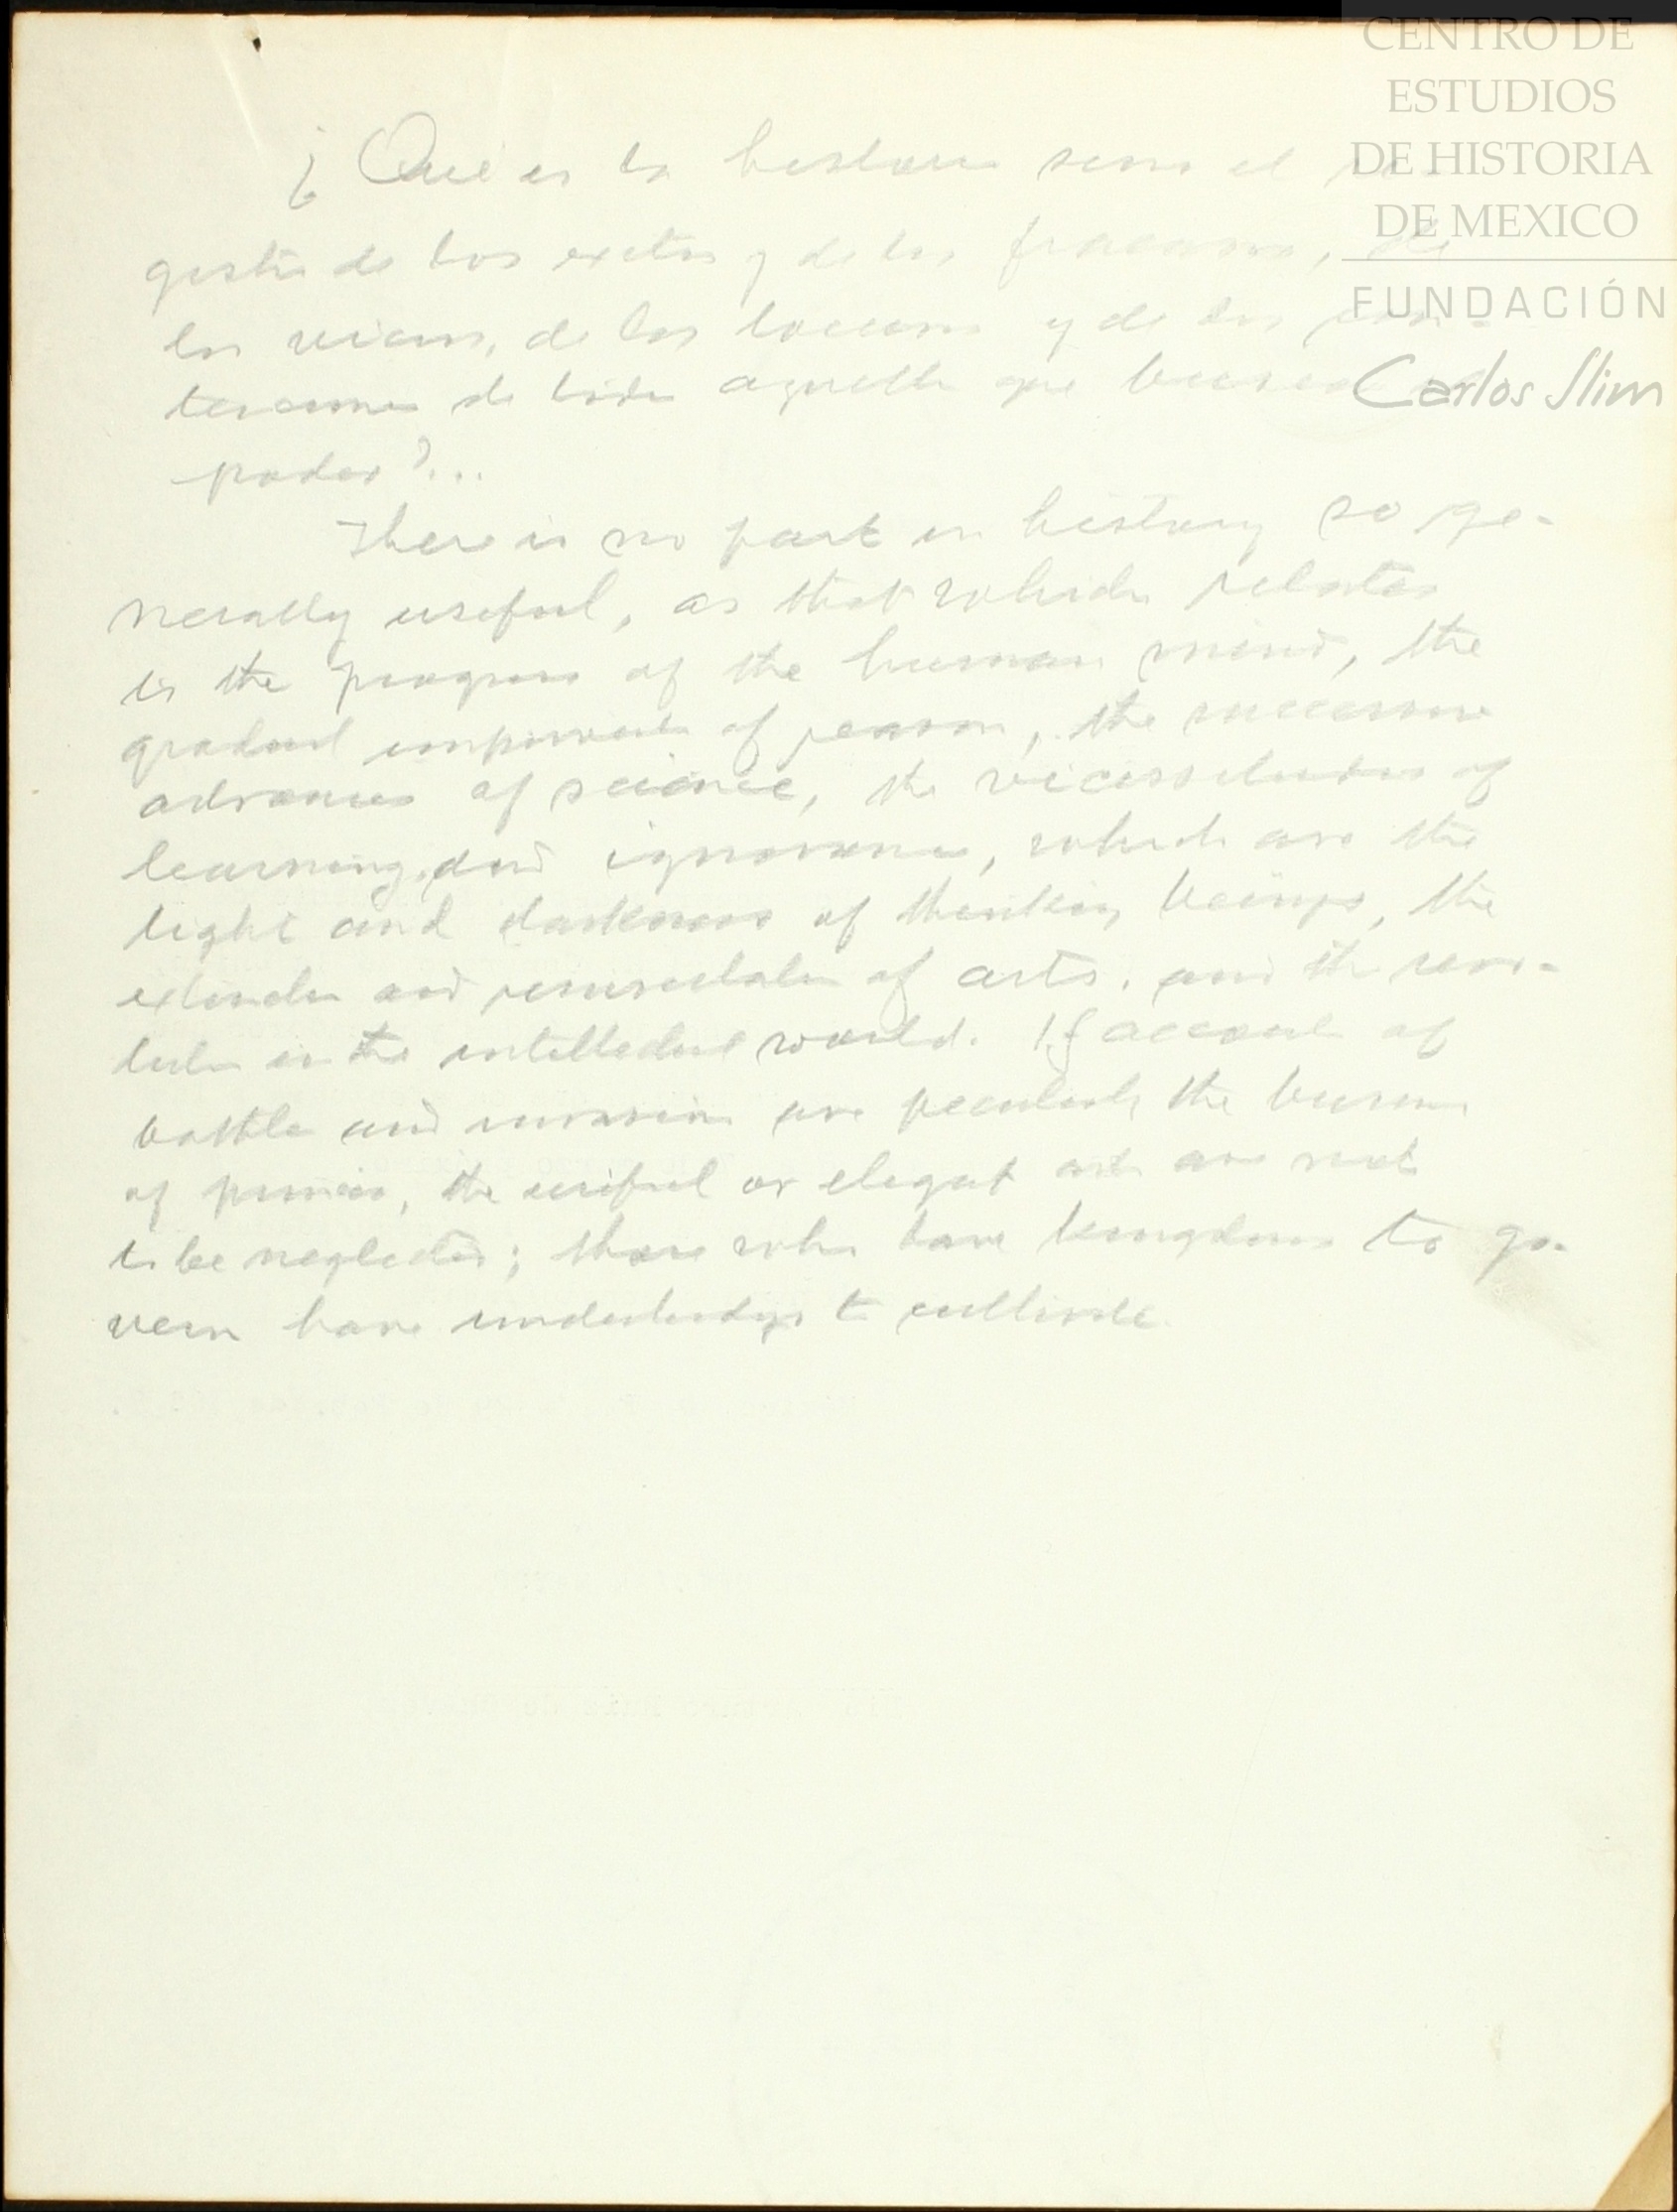 CENTRO DE
ESTUDIOS
DE HISTORIA
DE MEXICO
FUNDACIÓN
Carlos Slim
¿Que es la historia sino el re-
gistro de los exitos y de los fracasos, de
los vicios, de las locuras y de las con-
tenciones de todo aquello que busca el
poder?...
There is no part in history so ge-
nerally useful, as that which relates
to the progress of the human mind, the
gradual improvement of reason, the successive
advances of science, the vicissitudes of
learning and ignorance, which are the
light and darkness of thinking beings, the
extinction and resuscitation of arts, and the revo-
lution in the intellectual world. If account of
battle and invasion are peculiarly the business
of princes, the useful or elegant arts are not
to be neglected; those who have kingdoms to go-
vern have understandings to cultivate.